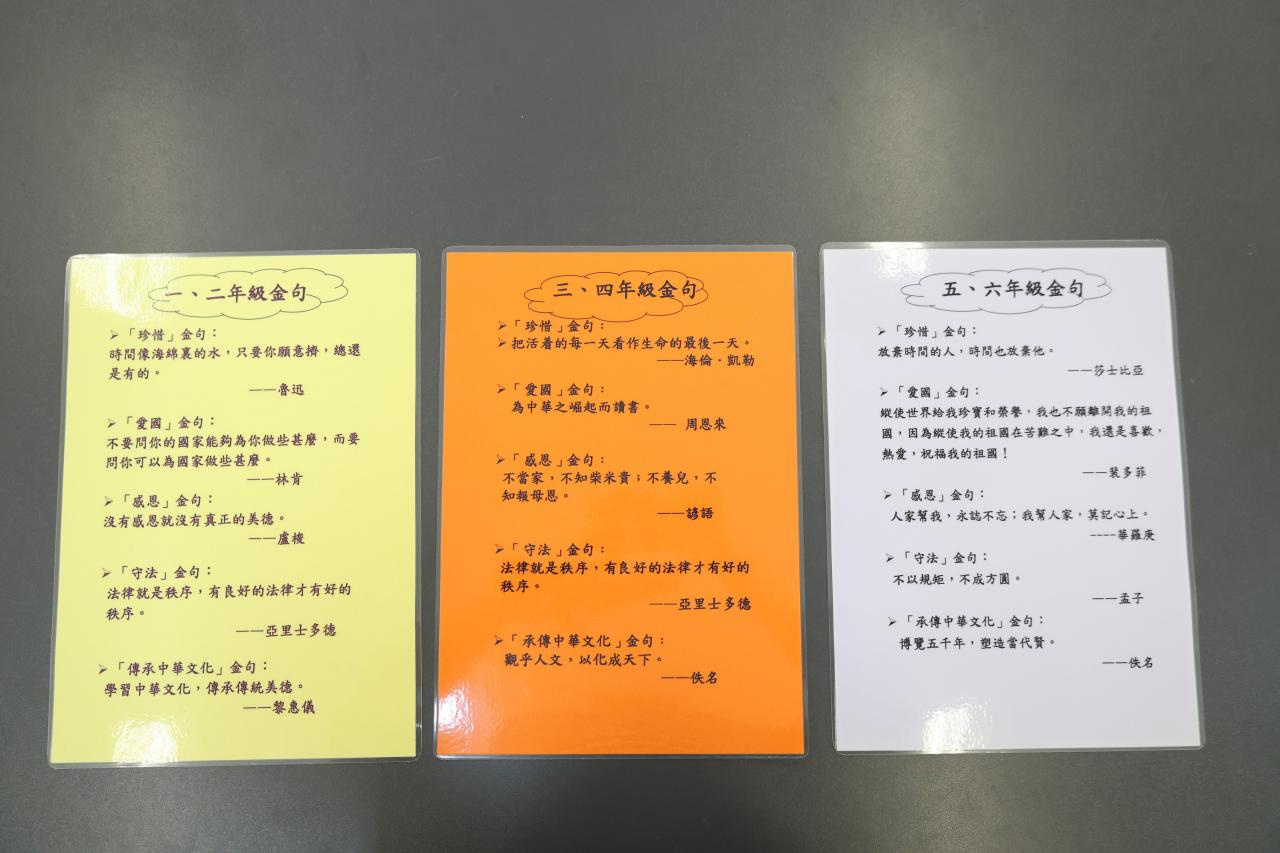 一、二年級金句
➢「珍惜」金句：
時間像海綿裏的水，只要你願意擠，總還
是有的。
——魯迅
➢「愛國」金句：
不要問你的國家能夠為你做些甚麼，而要
問你可以為國家做些甚麼。
——林肯
➢「感恩」金句：
沒有感恩就沒有真正的美德。
——盧梭
➢「守法」金句：
法律就是秩序，有良好的法律才有好的
秩序。
——亞里士多德
➢「傳承中華文化」金句：
學習中華文化，傳承傳統美德。
——黎惠儀
三、四年級金句
➢「珍惜」金句：
➢把活着的每一天看作生命的最後一天。
——海倫．凱勒
➢「愛國」金句：
為中華之崛起而讀書。
—— 周恩來
➢「感恩」金句：
不當家，不知柴米貴；不養兒，不
知報母恩。
——諺語
➢「守法」金句：
法律就是秩序，有良好的法律才有好的
秩序。
——亞里士多德
➢「承傳中華文化」金句：
觀乎人文，以化成天下。
——佚名
五、六年級金句
➢「珍惜」金句：
放棄時間的人，時間也放棄他。
——莎士比亞
➢「愛國」金句：
縱使世界給我珍寶和榮譽，我也不願離開我的祖
國，因為縱使我的祖國在苦難之中，我還是喜歡，
熱愛，祝福我的祖國！
——裴多菲
➢「感恩」金句：
人家幫我，永誌不忘；我幫人家，莫記心上。
----華羅庚
➢「守法」金句：
不以規矩，不成方圓。
——孟子
➢「承傳中華文化」金句：
博覽五千年，塑造當代賢。
——佚名